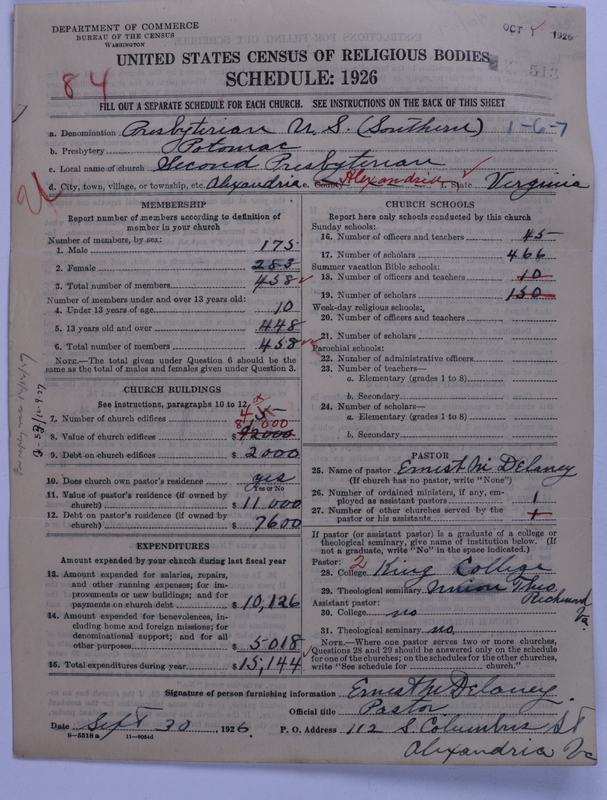 DEPARTMENT OF COMMERCE
BUREAU OF THE CENSUS
WASHINGTON
OCT 1926
UNITED STATES CENSUS OF RELIGIOUS BODIES
SCHEDULE: 1926
513
84
FILL OUT A SEPARATE SCHEDULE FOR EACH CHURCH. SEE INSTRUCTIONS ON THE BACK OF THIS SHEET
a. Denomination Presbyterian U. S. (Southern) 1-6-7
b. Presbytery Potomac
c. Local name of church Second Presbyterian
d. City, town, village, or township, etc. Alexandria e. County Alexandria f. State Virginia
MEMBERSHIP
Report number of members according to definition of member in your church
Number of members, by sex:
1. Male 175
2. Female 283
3. Total number of members 458
Number of members under and over 13 years old:
4. Under 13 years of age 10
5. 13 years old and over 448
6. Total number of members 458
NOTE.—The total given under Question 6 should be the
same as the total of males and females given under Question 3.
CHURCH BUILDINGS
See instructions, paragraphs 10 to 12
7. Number of church edifices 4 5
81000
8. Value of church edifices $ 92000
9. Debt on church edifices $ 2000
10. Does church own pastor's residence yes
Yes or No
11. Value of pastor's residence (if owned by
church) $ 11,000
12. Debt on pastor's residence (if owned by
church) $ 7600
EXPENDITURES
Amount expended by your church during last fiscal year
13. Amount expended for salaries, repairs,
and other running expenses; for im-
provements or new buildings; and for
payments on church debt $ 10,126
14. Amount expended for benevolences, in-
cluding home and foreign missions; for
denominational support; and for all
other purposes $ 5018
15. Total expenditures during year $ 15,144
CHURCH SCHOOLS
Report here only schools conducted by this church
Sunday schools:
16. Number of officers and teachers 45
17. Number of scholars 466
Summer vacation Bible schools:
18. Number of officers and teachers 10
19. Number of scholars 150
Week-day religious schools:
20. Number of officers and teachers
21. Number of scholars
Parochial schools:
22. Number of administrative officers
23. Number of teachers—
a. Elementary (grades 1 to 8)
b. Secondary
24. Number of scholars—
a. Elementary (grades 1 to 8)
b. Secondary
PASTOR
25. Name of pastor Ernest M Delaney
(If church has no pastor, write "None")
26. Number of ordained ministers, if any, em-
ployed as assistant pastors 1
27. Number of other churches served by the
pastor or his assistants 1
If pastor (or assistant pastor) is a graduate of a college or
theological seminary, give name of institution below. (If
not a graduate, write "No" in the space indicated.)
Pastor: 2
28. College King College
29. Theological seminary Union Theo Richmond Va.
Assistant pastor:
30. College no
31. Theological seminary no
NOTE.—Where one pastor serves two or more churches,
Questions 28 and 29 should be answered only on the schedule
for one of the churches; on the schedules for the other churches,
write "See schedule for church."
Signature of person furnishing information Ernest M Delaney
Official title Pastor
Date Sept 30 1926. P. O. Address 112 S. Columbus St
8—5518a 11—9034d
Alexandria Va